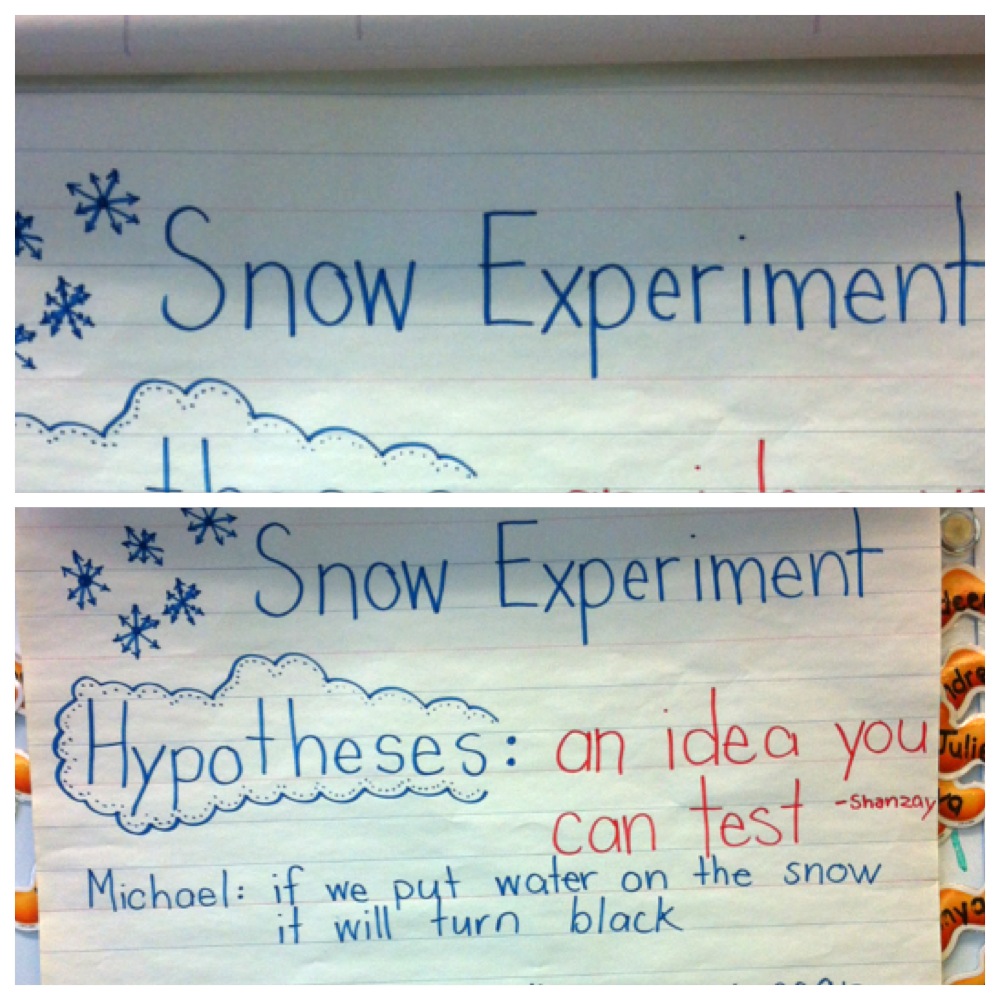 Snow Experiment
Snow Experiment
Hypotheses: an idea you
can test -Shanzay
Michael: if we put water on the snow
it will turn black
Julie